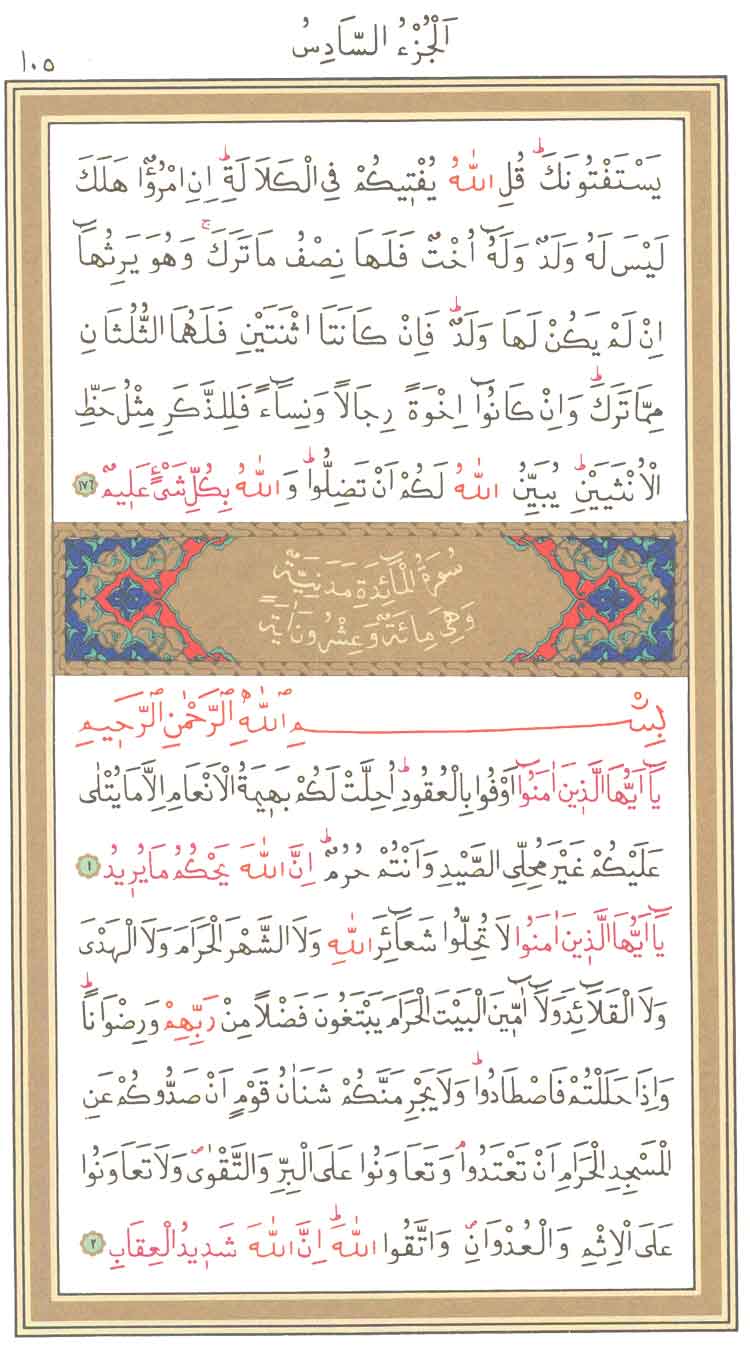 اَلْجُزْءُ السَّادِسُ
١٠٥
يَسْتَفْتُونَكَۜ قُلِ اللّٰهُ يُفْتٖيكُمْ فِى الْكَلَالَةِۜ اِنِ امْرُؤٌا هَلَكَ
لَيْسَ لَهُ وَلَدٌ وَلَهُٓ اُخْتٌ فَلَهَا نِصْفُ مَا تَرَكَۚ وَهُوَ يَرِثُهَٓا
اِنْ لَمْ يَكُنْ لَهَا وَلَدٌۜ فَاِنْ كَانَتَا اثْنَتَيْنِ فَلَهُمَا الثُّلُثَانِ
مِمَّا تَرَكَۜ وَاِنْ كَانُٓوا اِخْوَةً رِجَالًا وَنِسَٓاءً فَلِلذَّكَرِ مِثْلُ حَظِّ
الْاُنْثَيَيْنِۜ يُبَيِّنُ اللّٰهُ لَكُمْ اَنْ تَضِلُّواۜ وَ اللّٰهُ بِكُلِّ شَىْءٍ عَلٖيمٌ ١٧٦
سُورَةُ الْمَٓائِدَةِ مَدَنِيَّةٌ
وَهِىَ مِائَةٌ وَعِشْرُونَ اٰيَةً
بِسْمِ اللّٰهِ الرَّحْمٰنِ الرَّحٖيمِ
يَٓا اَيُّهَا الَّذٖينَ اٰمَنُٓوا اَوْفُوا بِالْعُقُودِۜ اُحِلَّتْ لَكُمْ بَهٖيمَةُ الْاَنْعَامِ اِلَّا مَا يُتْلٰى
عَلَيْكُمْ غَيْرَ مُحِلِّى الصَّيْدِ وَاَنْتُمْ حُرُمٌۜ اِنَّ اللّٰهَ يَحْكُمُ مَا يُرٖيدُ ١
يَٓا اَيُّهَا الَّذٖينَ اٰمَنُوا لَا تُحِلُّوا شَعَٓائِرَ اللّٰهِ وَلَا الشَّهْرَ الْحَرَامَ وَلَا الْهَدْىَ
وَلَا الْقَلَٓائِدَ وَلَٓا اٰمّٖينَ الْبَيْتَ الْحَرَامَ يَبْتَغُونَ فَضْلًا مِنْ رَبِّهِمْ وَرِضْوَانًاۜ
وَاِذَا حَلَلْتُمْ فَاصْطَادُواۜ وَلَا يَجْرِمَنَّكُمْ شَنَاٰنُ قَوْمٍ اَنْ صَدُّوكُمْ عَنِ
الْمَسْجِدِ الْحَرَامِ اَنْ تَعْتَدُواۢ وَتَعَاوَنُوا عَلَى الْبِرِّ وَالتَّقْوٰىۖ وَلَا تَعَاوَنُوا
عَلَى الْاِثْمِ وَالْعُدْوَانِۖ وَاتَّقُوا اللّٰهَۜ اِنَّ اللّٰهَ شَدٖيدُ الْعِقَابِ ٢